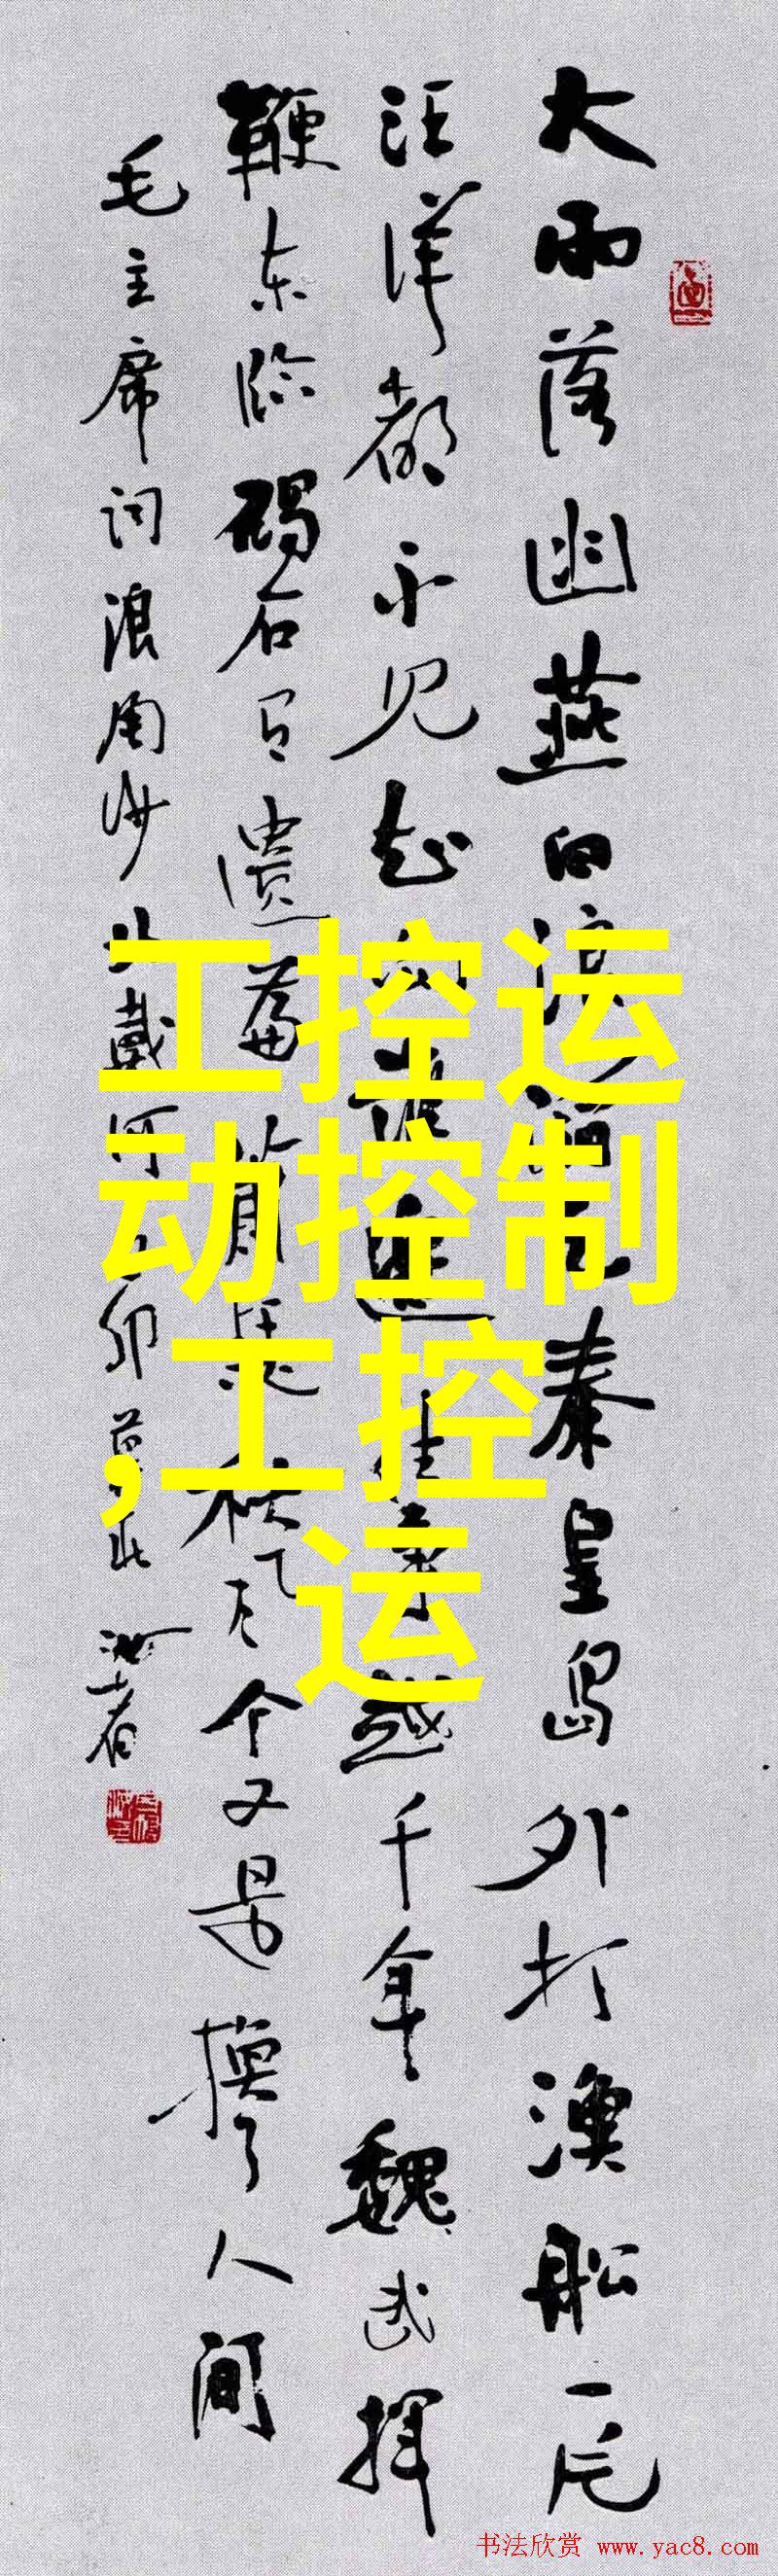 大雨落幽燕白浪滔天秦皇島外打漁船一片
汪洋都不見知向誰邊往事越千年魏武揮
鞭东临碣石有遗篇萧瑟秋风今又是換了人间
毛主席词浪淘沙北戴河丁卯
工控运
动控制
,工控
运
书法欣赏 www.yac8.com